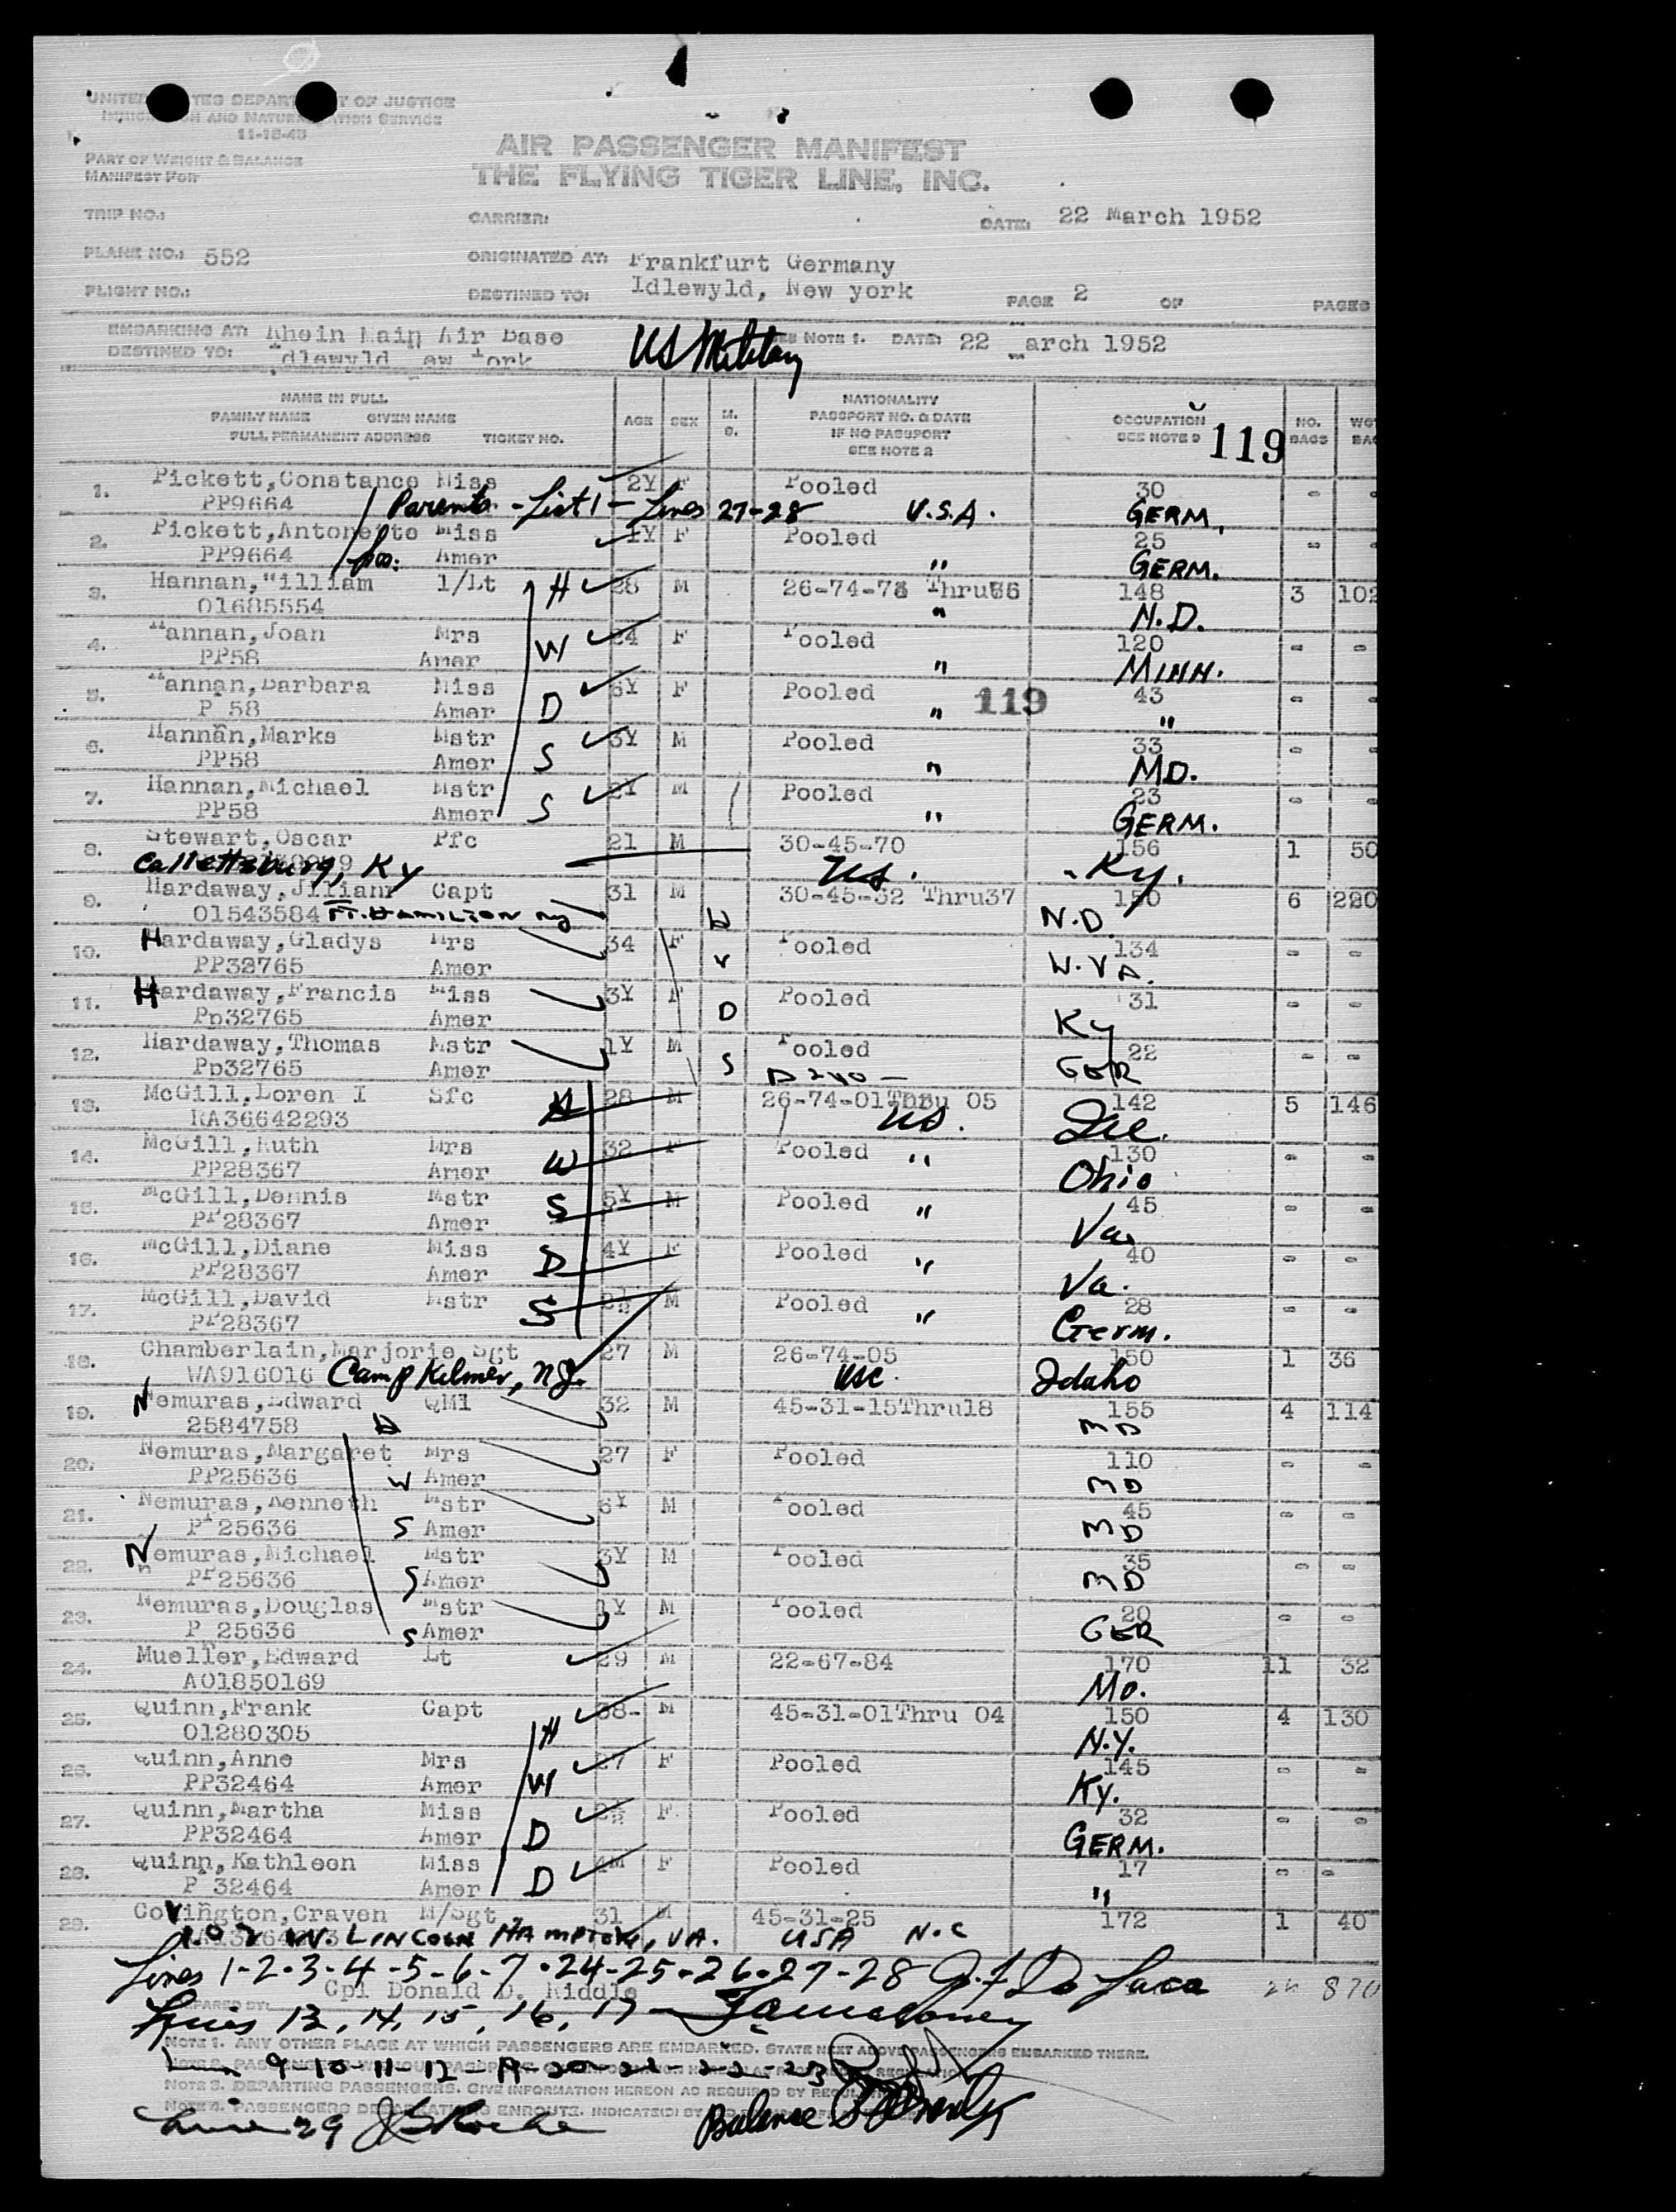 UNITED STATES DEPARTMENT OF JUSTICE
IMMIGRATION AND NATURALIZATION SERVICE
11-18-48
PART OF WEIGHT & BALANCE
MANIFEST FOR
AIR PASSENGER MANIFEST
THE FLYING TIGER LINE, INC.
TRIP NO.: CARRIER: DATE: 22 March 1952
PLANE NO.: 552 ORIGINATED AT: Frankfurt Germany
FLIGHT NO.: DESTINED TO: Idlewyld, New york PAGE 2 OF PAGES
EMBARKING AT: Rhein Main Air Base US Military SEE NOTE 1. DATE: 22 March 1952
DESTINED TO: Idlewyld New York
NAME IN FULL
FAMILY NAME GIVEN NAME
FULL PERMANENT ADDRESS TICKET NO.
AGE SEX M. S.
NATIONALITY
PASSPORT NO. & DATE
IF NO PASSPORT
SEE NOTE 2
OCCUPATION
SEE NOTE 2 119
NO. BAGS WGT BAG
1. Pickett, Constance Miss 2Y F Pooled 30 - -
PP9664 Parents - List 1 - Lines 27-28 U.S.A. GERM.
2. Pickett, Antonette Miss 1Y F Pooled 25 - -
PP9664 Amer " GERM.
3. Hannan, William 1/Lt H 28 M 26-74-76 Thru 148 3 102
01685554 " N.D.
4. Hannan, Joan Mrs W 24 F Pooled 120 - -
PP58 Amer " MINN.
5. Hannan, Barbara Miss D 6Y F Pooled 119 43 - -
P 58 Amer " "
6. Hannan, Marks Mstr S 3Y M Pooled 33 - -
PP58 Amer " MD.
7. Hannan, Michael Mstr S 2Y M Pooled 23 - -
PP58 Amer " GERM.
8. Stewart, Oscar Pfc 21 M 30-45-70 156 1 50
Callettsburg, Ky US. Ky.
9. Hardaway, Jilianr Capt 31 M 30-45-32 Thru37 150 6 220
01543584 FT. HAMILTON NY N.D.
10. Hardaway, Gladys Mrs 34 F Pooled 134 - -
PP32765 Amer W.VA.
11. Hardaway, Francis Miss 3Y F Pooled 31 - -
Pp32765 Amer D Ky
12. Hardaway, Thomas Mstr 1Y M Pooled 22 - -
Pp32765 Amer S GER
13. McGill, Loren I Sfc H 28 M 26-74-01Thru 05 142 5 146
RA36642293 US. Ill.
14. McGill, Ruth Mrs 32 F Pooled 130 - -
PP28367 Amer W " Ohio
15. McGill, Dennis Mstr 5Y M Pooled 45 - -
PP28367 Amer S " Va.
16. McGill, Diane Miss 4Y F Pooled 40 - -
PP28367 Amer D " Va.
17. McGill, David Mstr S 2½ M Pooled 28 - -
PP28367 " Germ.
18. Chamberlain, Marjorie Sgt 27 M 26-74-05 150 1 36
WA916016 Camp Kilmer, N.J. USC. Idaho
19. Nemuras, Edward QM1 32 M 45-31-15Thru18 155 4 114
2584758 H MD
20. Nemuras, Margaret Mrs 27 F Pooled 110 - -
PP25636 W Amer MD
21. Nemuras, Kenneth Mstr 6Y M Pooled 45 - -
PP25636 S Amer MD
22. Nemuras, Michael Mstr 3Y M Pooled 35 - -
PP25636 S Amer MD
23. Nemuras, Douglas Mstr 1Y M Pooled 20 - -
P 25636 S Amer GER
24. Mueller, Edward Lt 29 M 22-67-84 170 11 32
AO1850169 Mo.
25. Quinn, Frank Capt 38- M 45-31-01Thru 04 150 4 130
01280305 H N.Y.
26. Quinn, Anne Mrs 27 F Pooled 145 - -
PP32464 Amer W Ky.
27. Quinn, Martha Miss 2½ F Pooled 32 - -
PP32464 Amer D GERM.
28. Quinn, Kathleen Miss 4M F Pooled 17 - -
P 32464 Amer D "
29. Covington, Craven M/Sgt 31 M 45-31-25 172 1 40
W. LINCOLN HAMPTON, VA. USA N.C
Lines 1-2-3-4-5-6-7-24-25-26-27-28 870
PREPARED BY: Cpl Donald D. Riddle
Lines 13, 14, 15, 16, 17
NOTE 1. ANY OTHER PLACE AT WHICH PASSENGERS ARE EMBARKED. STATE NEXT ABOVE PASSENGERS EMBARKED THERE.
9-10-11-12-19-20-21-22-23
NOTE 3. DEPARTING PASSENGERS. GIVE INFORMATION HEREON AS REQUIRED BY
NOTE 4. PASSENGERS ENROUTE. INDICATE(D) BY
Line 29 Balance